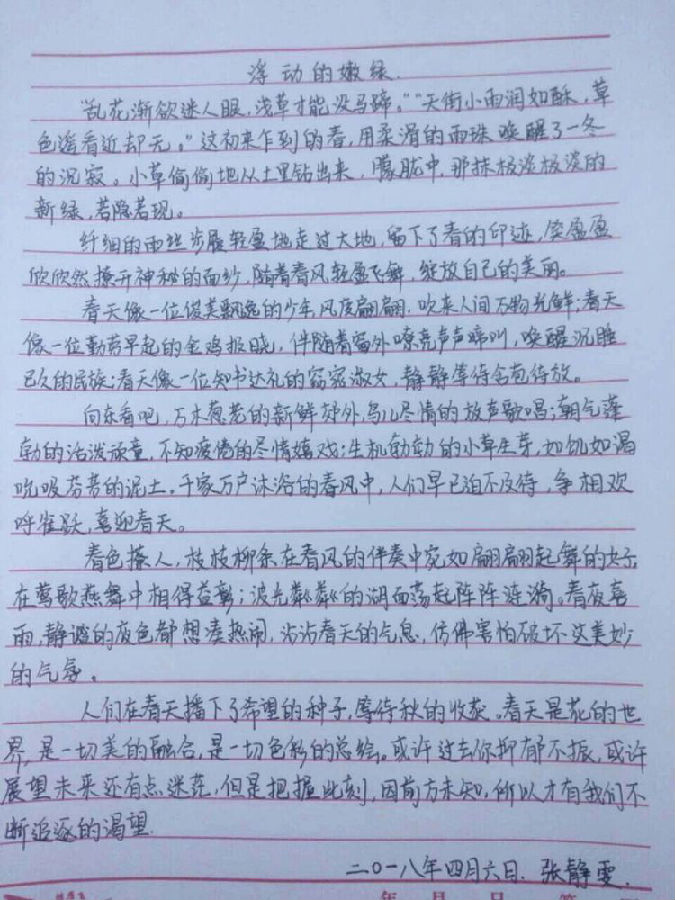 浮动的嫩绿.
"乱花渐欲迷人眼,浅草才能没马蹄。""天街小雨润如酥,草
色遥看近却无。"这初来乍到的春,用柔滑的雨珠唤醒了一冬
的沉寂。小草偷偷地从土里钻出来,朦胧中,那抹极淡极淡的
新绿,若隐若现。
纤细的雨丝步履轻盈地走过大地,留下了春的印迹,
欣欣然撩开神秘的面纱,随着春风轻盈飞舞,绽放自己的美丽。
春天像一位俊美飘逸的少年,风度翩翩,吹来人间万物光鲜;春天
像一位勤劳早起的金鸡报晓,伴随着窗外嘹亮声声啼叫,唤醒沉睡
已久的民族;春天像一位知书达礼的窈窕淑女,静静等待含苞待放。
向东看吧,万木葱茏的新鲜郊外,鸟儿尽情的放声歌唱;朝气蓬
勃的活泼顽童,不知疲倦的尽情嬉戏;生机勃勃的小草生芽,如饥如渴
吮吸芬芳的泥土。千家万户沐浴的春风中,人们早已迫不及待,争相欢
呼雀跃,喜迎春天。
春色撩人,枝枝柳条在春风的伴奏中宛如翩翩起舞的女子,
在莺歌燕舞中相得益彰;波光粼粼的湖面荡起阵阵涟漪。春夜喜
雨,静谧的夜色都想凑热闹,沾沾春天的气息,仿佛害怕破坏这美妙
的气氛。
人们在春天播下了希望的种子,等待秋的收获。春天是花的世
界,是一切美的融合,是一切色彩的总绘。或许过去你抑郁不振,或许
展望未来还有点迷茫,但是把握此刻,因前方未知,所以才有我们不
断追逐的渴望.
二〇一八年四月六日.张静雯.
年 月 日 第